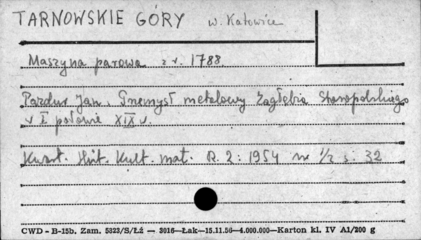 TARNOWSKIE GÓRY w. Katowice
Maszyna parowa z r. 1788.
Pazdur Jan. Przemysł metalowy Zagłębia Staropolskiego
w I połowie XIX w.
Kwart. Hist. Kult. mat. R. 2: 1954 nr 1/2 s. 32
CWD - B-15b. Zam. 5823/S/Łż — 3016—Łak—15.11.56—4.000.000—Karton kl. IV A1/200 g